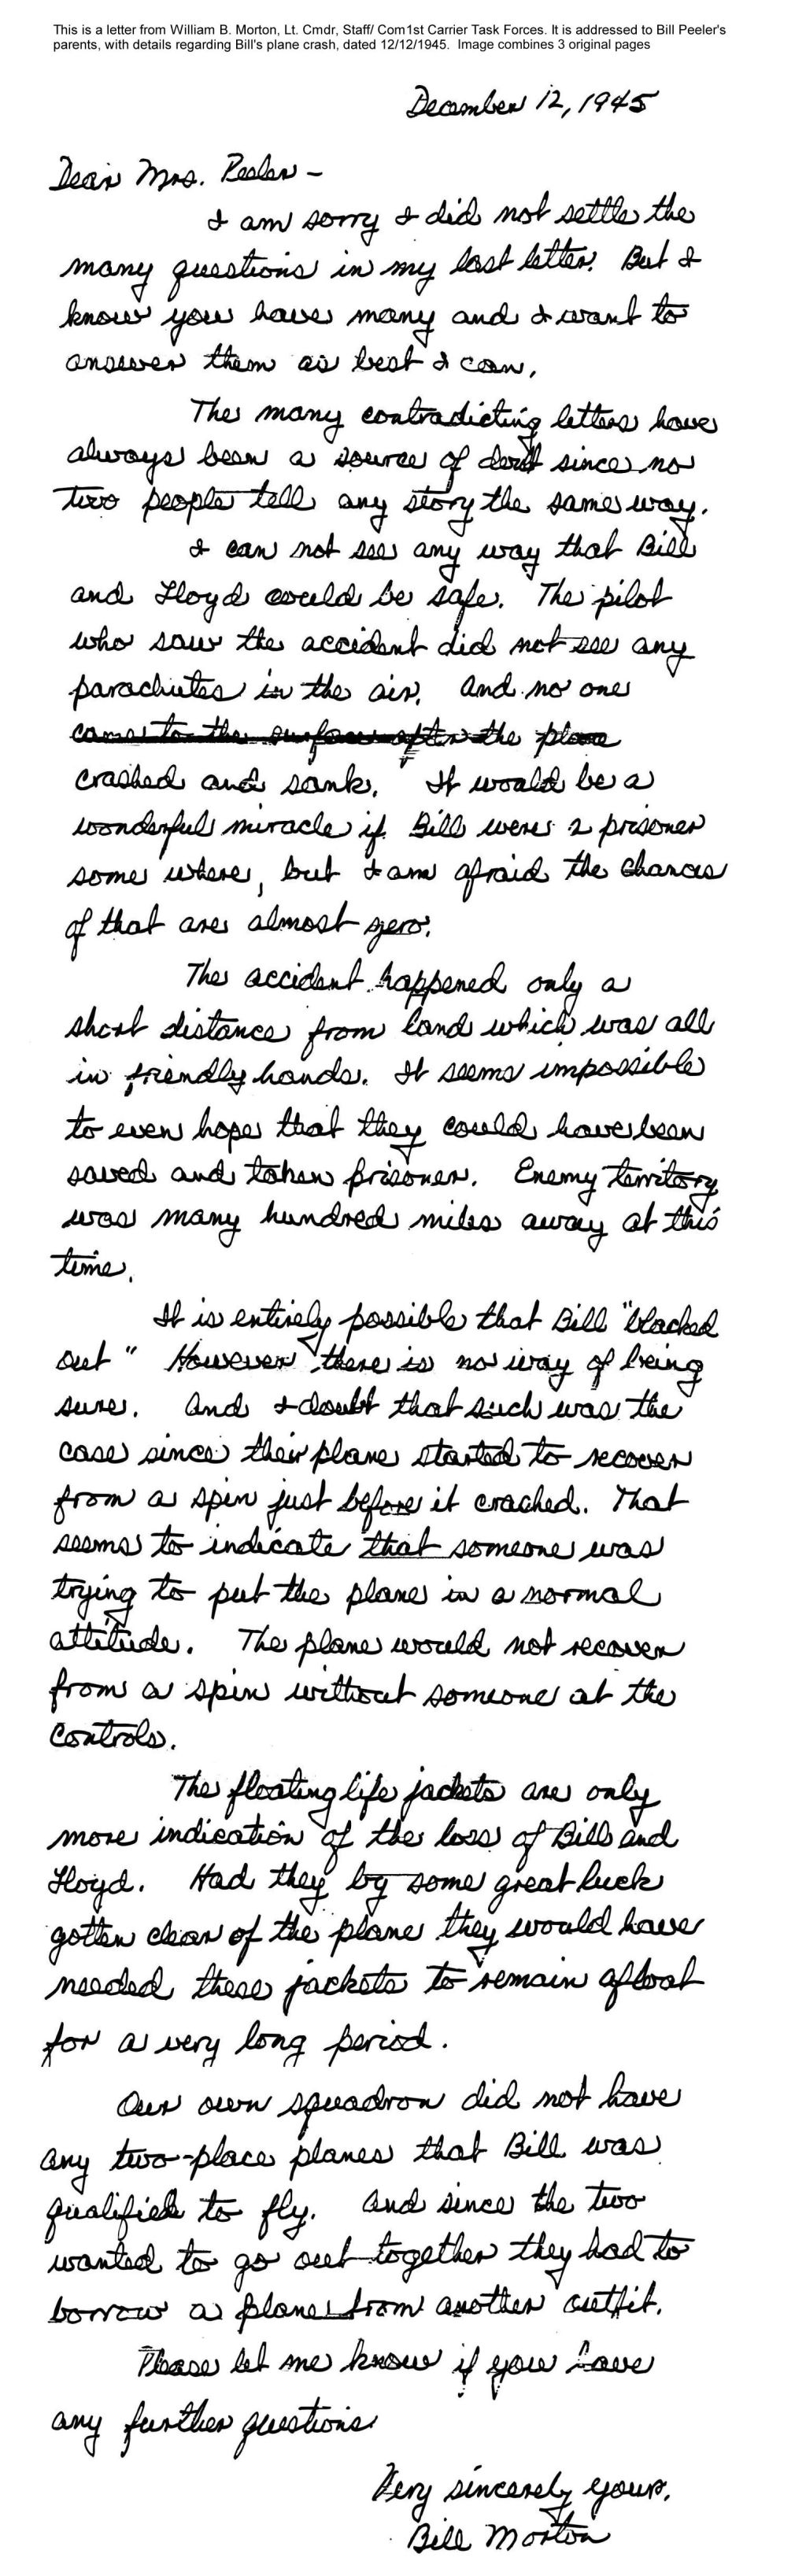 This is a letter from William B. Morton, Lt. Cmdr, Staff/ Com1st Carrier Task Forces. It is addressed to Bill Peeler's
parents, with details regarding Bill's plane crash, dated 12/12/1945.  Image combines 3 original pages
December 12, 1945
Dear Mrs. Peeler -
I am sorry I did not settle the
many questions in my last letter. But I
know you have many and I want to
answer them as best I can.
The many contradicting letters have
always been a source of since no
two people tell any story the same way.
I can not see any way that Bill
and Lloyd could be safe. The pilot
who saw the accident did not see any
parachutes in the air. And no one
came to the surface after the plane
crashed and sank. It would be a
wonderful miracle if Bill were a prisoner
some where, but I am afraid the chances
of that are almost zero.
The accident happened only a
short distance from land which was all
in friendly hands. It seems impossible
to even hope that they could have been
saved and taken prisoner. Enemy territory
was many hundred miles away at this
time.
It is entirely possible that Bill "blacked
out" However there is no way of being
sure. And I doubt that such was the
case since their plane started to recover
from a spin just before it crached. That
seems to indicate that someone was
trying to put the plane in a normal
attitude. The plane would not recover
from a spin without someone at the
controls.
The floating life jackets are only
more indication of the loss of Bill and
Lloyd. Had they by some great luck
gotten clear of the plane they would have
needed these jackets to remain afloat
for a very long period.
Our own squadron did not have
any two-place planes that Bill was
qualified to fly. And since the two
wanted to go out together they had to
borrow a plane from another outfit.
Please let me know if you have
any further questions
Very sincerely yours,
Bill Morton